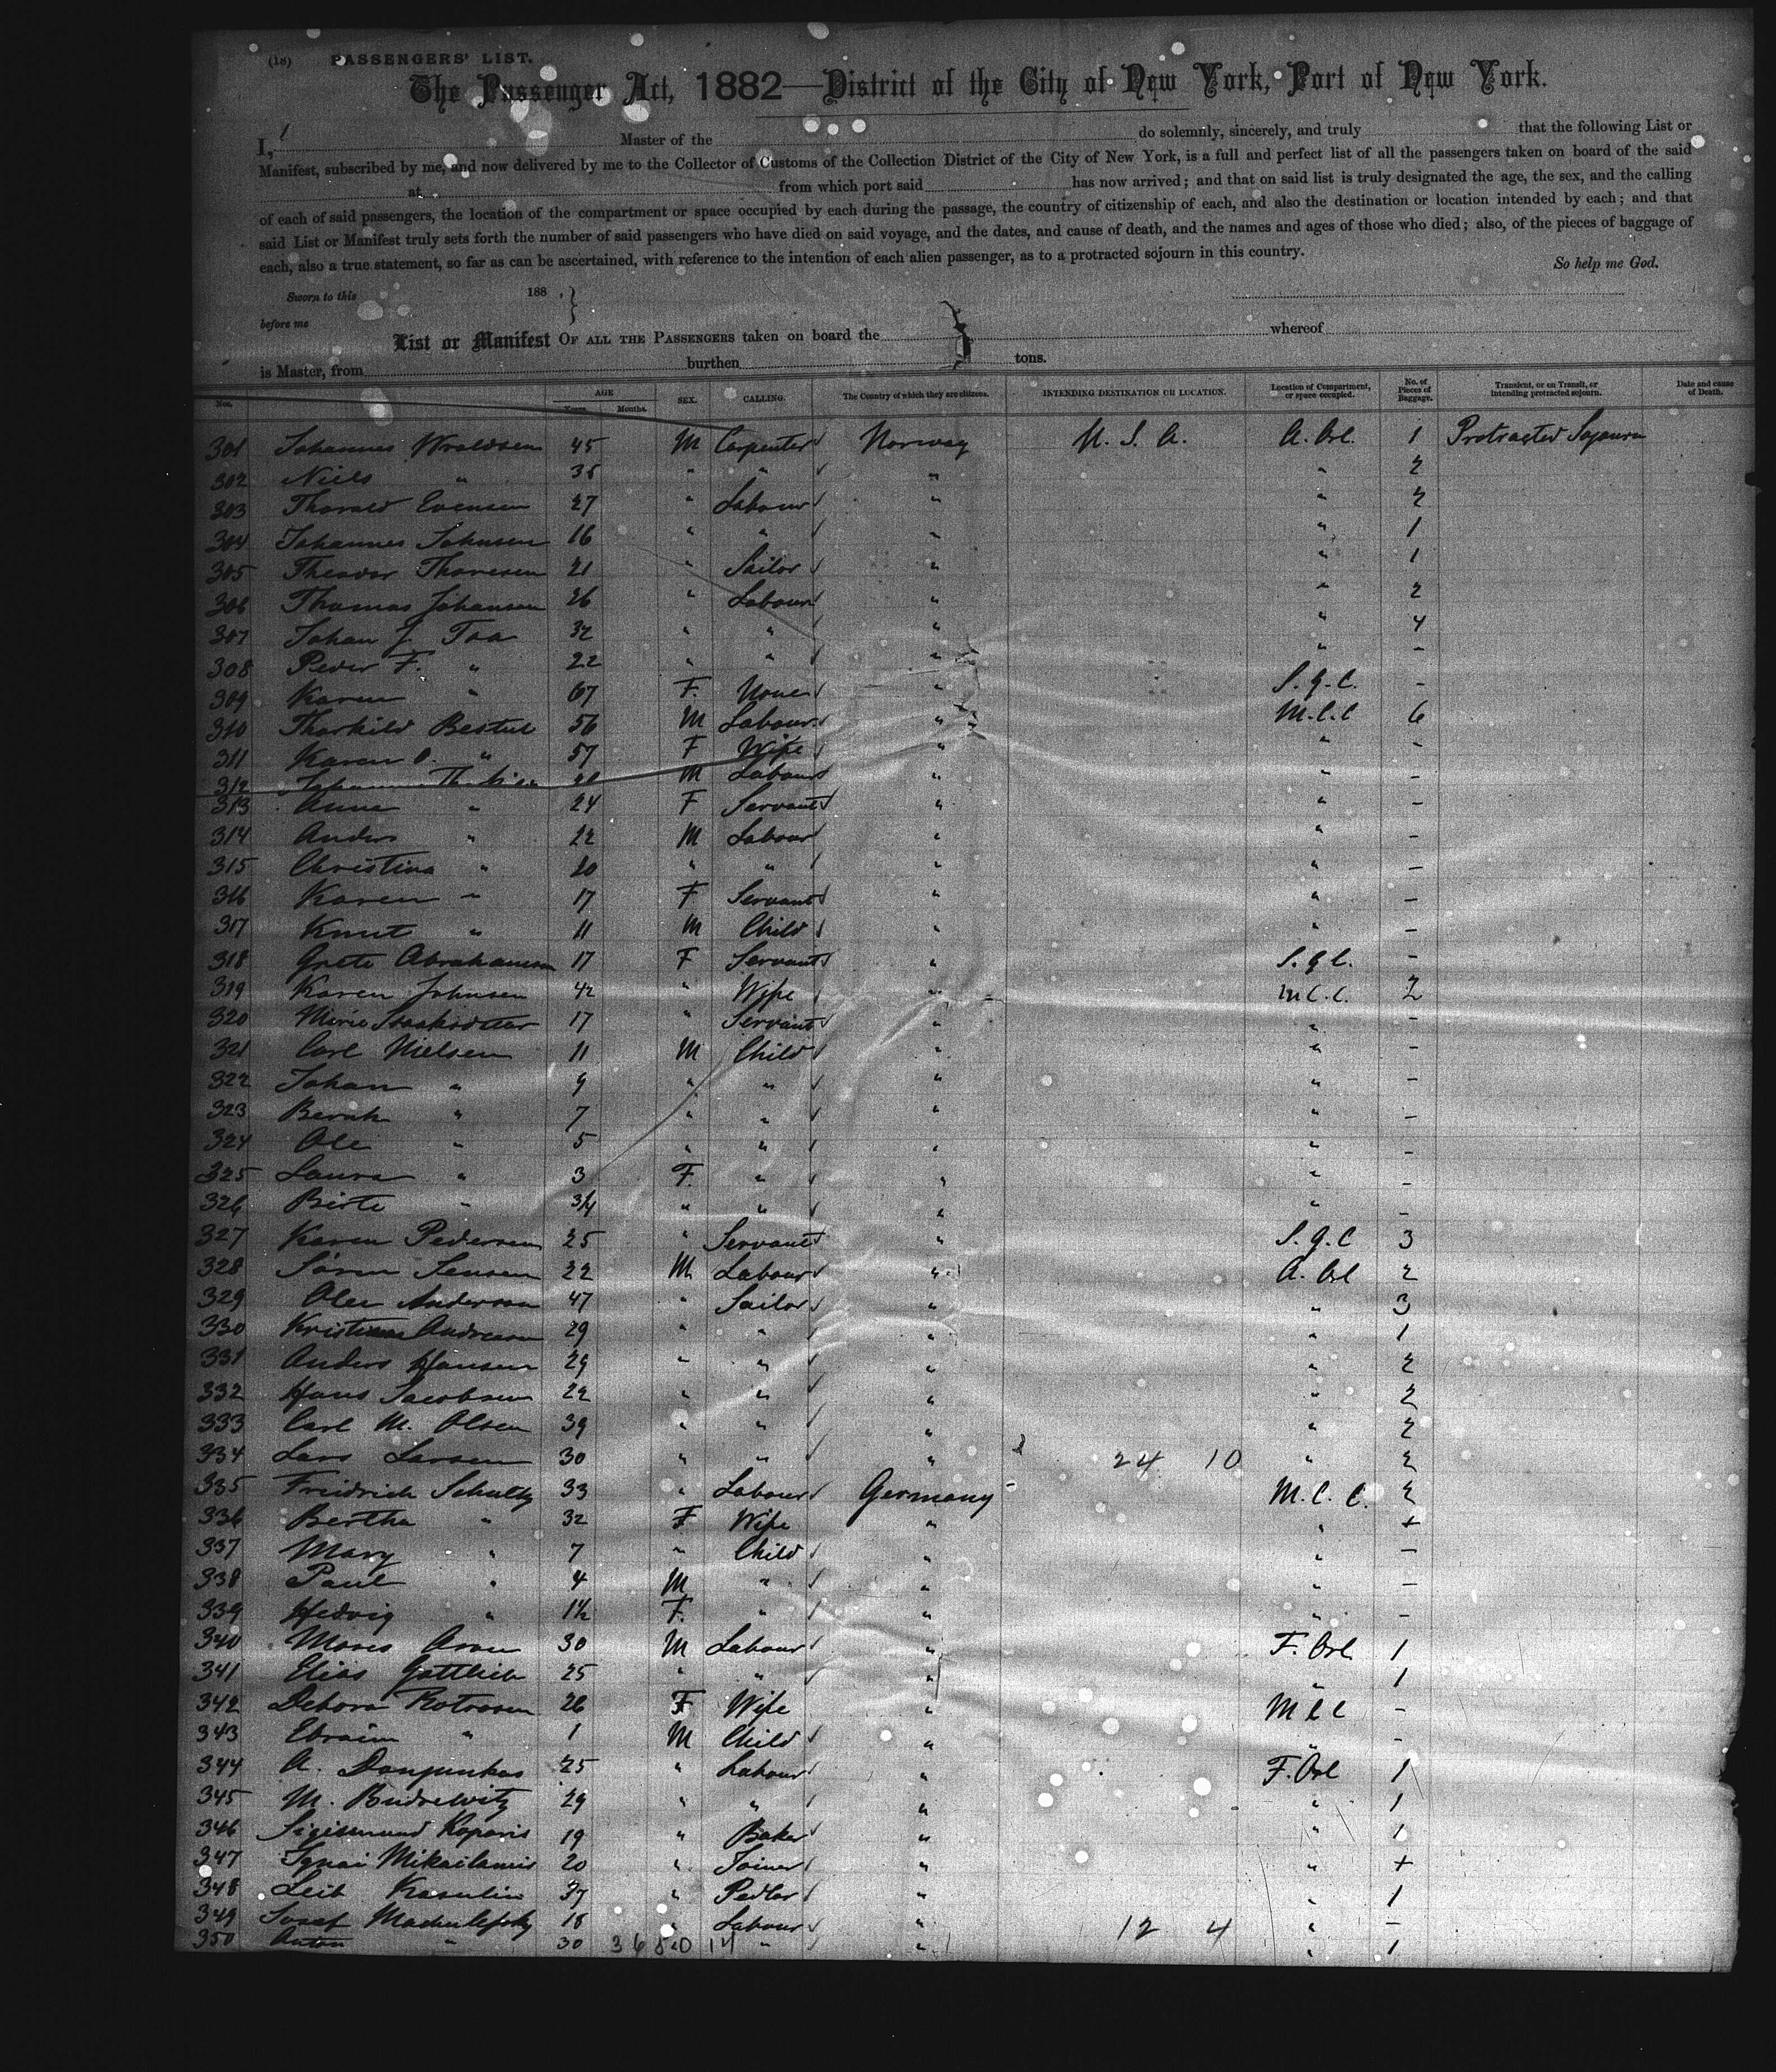 (18) PASSENGERS' LIST.
The Passenger Act, 1882—District of the City of New York, Port of New York.
I, Master of the do solemnly, sincerely, and truly that the following List or
Manifest, subscribed by me, and now delivered by me to the Collector of Customs of the Collection District of the City of New York, is a full and perfect list of all the passengers taken on board of the said
at from which port said has now arrived; and that on said list is truly designated the age, the sex, and the calling
of each of said passengers, the location of the compartment or space occupied by each during the passage, the country of citizenship of each, and also the destination or location intended by each; and that
said List or Manifest truly sets forth the number of said passengers who have died on said voyage, and the dates, and cause of death, and the names and ages of those who died; also, of the pieces of baggage of
each, also a true statement, so far as can be ascertained, with reference to the intention of each alien passenger, as to a protracted sojourn in this country. So help me God.
Sworn to this 188 .
before me
List or Manifest OF ALL THE PASSENGERS taken on board the whereof
is Master, from burthen tons.
Nos. AGE Years. Months. SEX. CALLING. The Country of which they are citizens. INTENDING DESTINATION OR LOCATION. Location of Compartment, or space occupied. No. of Pieces of Baggage. Transient, or en Transit, or intending protracted sojourn. Date and cause of Death.
301 Johannes 45 M Carpenter Norway U. S. A. A. Orl. 1 Protracted Sojourn
302 Niels " 38 " " " " 2
303 Thorald Evensen 27 " Labour " " 2
304 Johannes Johnsen 16 " " " " 1
305 Theodor Thoresen 21 " Sailor " " 1
306 Thomas Johansen 26 " Labour " " 2
307 Johan J. Taa 32 " " " " 4
308 Peder F. " 22 " " " " -
309 Karen " 67 F. None " S.g.C. -
310 Thorkild Bestul 56 M Labour " M.C.C 6
311 Karen O. " 57 F Wife " " -
312 M Labour " " -
313 Anna " 24 F Servant " " -
314 Anders " 22 M Labour " " -
315 Christina " 20 " " " " -
316 Karen " 17 F Servant " " -
317 Knut " 11 M Child " " -
318 Grete Abrahamsen 17 F Servant " S.g.C. -
319 Karen Johnsen 42 " Wife " M.C.C. 2
320 17 " Servant " " -
321 Carl Nielsen 11 M Child " " -
322 Johan " 9 " " " " -
323 " 7 " " " " -
324 Ole " 5 " " " " -
325 Laura " 3 F. " " " -
326 Birte " 3/4 " " " " -
327 Karen Pedersen 25 " Servant " S.g.C 3
328 Sören Jensen 22 M Labour " A. Orl 2
329 Olee Anderson 47 " Sailor " " 3
330 Andreasen 29 " " " " 1
331 Anders Hansen 29 " " " " 2
332 Hans Jacobsen 22 " " " " 2
333 Carl M. Olsen 39 " " " " 2
334 Lars Larsen 30 " " " 24 10 " 2
335 Freidrich Schultz 33 " Labour Germany M. C. C. 2
336 Bertha " 32 F Wife " " +
337 Mary " 7 " Child " " -
338 Paul " 4 M " " " -
339 Hedvig " 1½ F. " " " -
340 Moses Aron 30 M Labour " F. Orl 1
341 Elias Gottlieb 25 " " " " 1
342 Debora Rotrosen 26 F Wife " M C C -
343 Ebraim " 1 M Child " " -
344 A. 25 " Labour " F. Orl 1
345 M. Budrewitz 29 " " " " 1
346 Sigismund Koparis 19 " Baker " " 1
347 20 " Joiner " " +
348 Leib Kasulin 37 " Pedlar " " 1
349 Josef 18 " Labour " 12 4 " -
350 Anton " 30 " " " 1